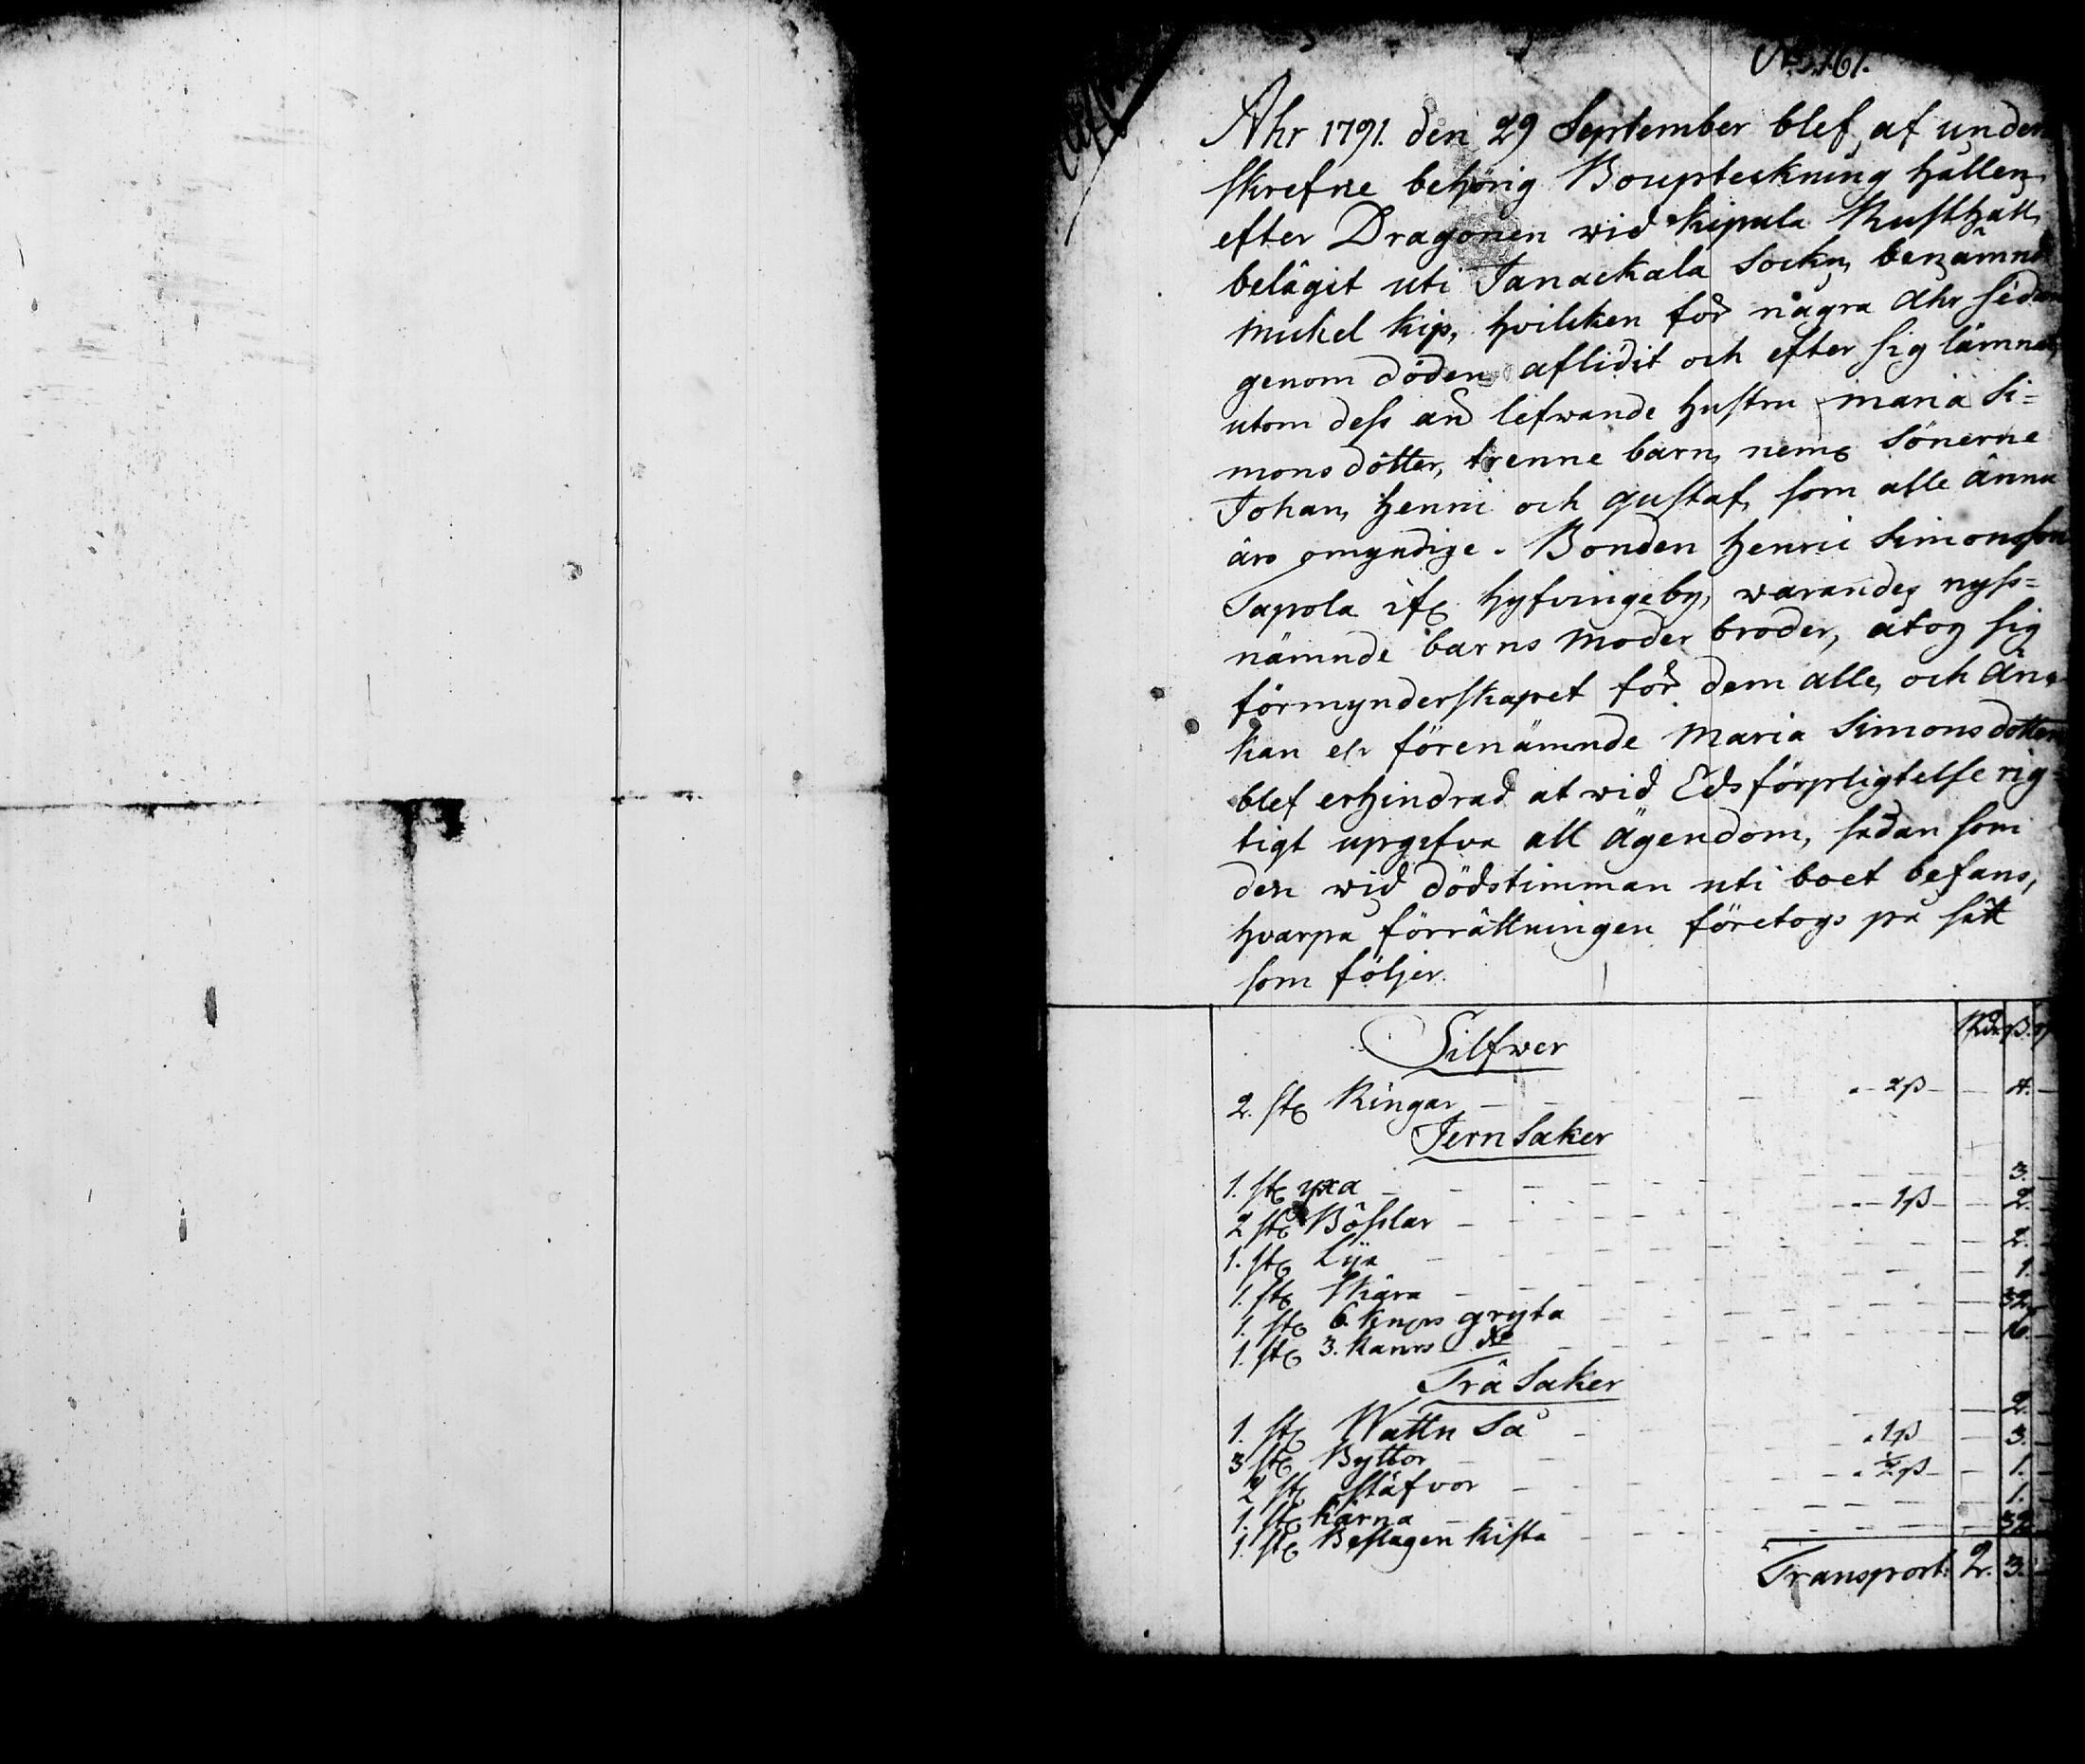 Ahr 1791. den 29 September blef af under
skrefne behörig Boupteckning hållen
efter Dragonen wid Kipula Rusthåll
belägit uti Janackala Sockn, benämnd
Mickel Kip, hvilcken för några åhr sedan
genom döden aflidit och efter sig lämnat,
utom dess än lefwande hustru Maria Si=
mons dotter, trenne barn, neml Sönerne
Johan, Henric och Gustaf, som alle ännu
äro omyndige. Bonden Henric Simonsson
Tapola ifr Hyfvingeby, warandes nyss=
nämnde barns Moder broder, åtog sig
förmynderskapet för dem alle, och än
kan elr förenämnde Maria Simons dotter
blef erhindrad at wid Eds förpligtelse rig=
tigt upgifva all ägendom, sådan som
den wid dödstimman uti boet befans,
hvarpå förrättningen företogs på sätt
som följer.
Rdr ß.
Silfwer
2. st Ringar - - - 2ß - 4. -
Jern Saker
1. st yxa - - - 3. -
2 st Bösslar - - - 1ß - 2 -
1. st Lija - - - 2. -
1. st Skära - - - 1. -
1. st 6. Knrs gryta - - - 32
1. st 3. Kanrs do - - - 16. -
Trä Saker
1. st Wattu Så - - - 2. -
3 st Byttor - - - 1ß - 3. -
2 st Stäfvor - - - ½ ß - 1. -
1. st Kärna - - - 1. -
1. st Beslagen Kista - - - 32
Transport: 2. 3. -